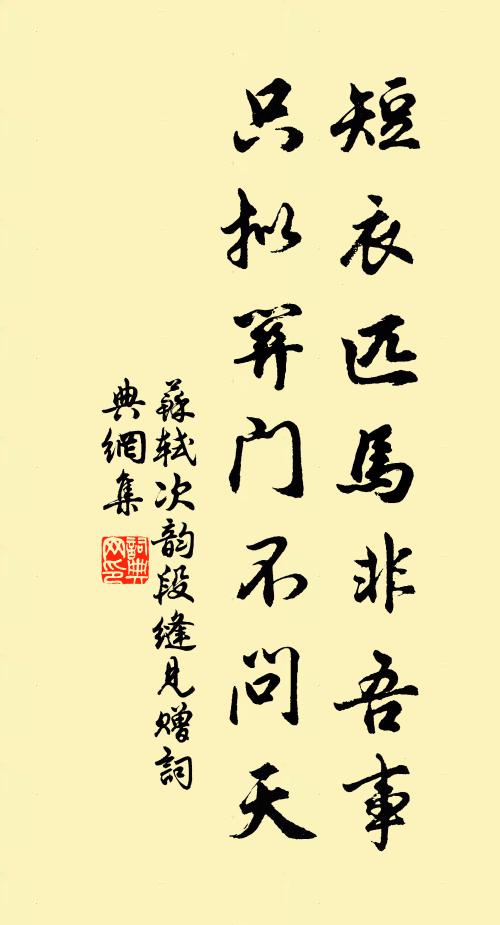 短衣匹馬非吾事
只拟䦕門不問天
蘇軾次韵段縫見赠詞
典網集
詞典
网印